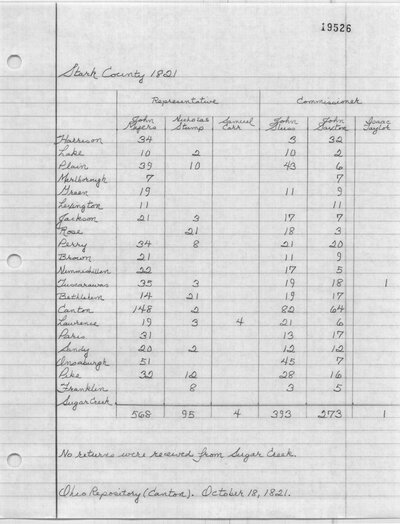 19526
Stark County 1821
Representative Commissioner
John Rogers Nicholas Stump Samuel Carr John John Saxton Isaac Taylor
Harrison 34 3 32
Lake 10 2 10 2
Plain 39 10 43 6
Marlborough 7 7
Green 19 11 9
Lexington 11 11
Jackson 21 3 17 7
Rose 21 18 3
Perry 34 8 21 20
Brown 21 11 9
Nimmishillen 22 17 5
Tuscarawas 35 3 19 18 1
Bethlehem 14 21 19 17
Canton 148 2 82 64
Lawrence 19 3 4 21 6
Paris 31 13 17
Sandy 20 2 12 12
Osnaburgh 51 45 7
Pike 32 12 28 16
Franklin 8 3 5
Sugar Creek
568 95 4 393 273 1
No returns were received from Sugar Creek.
Ohio Repository (Canton). October 18, 1821.